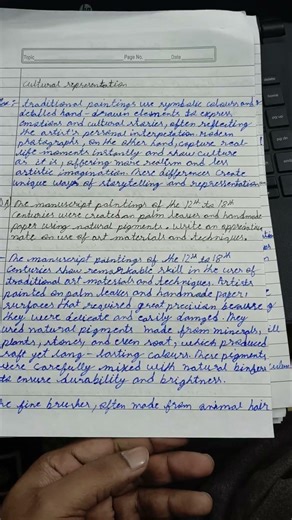 Topic Page No. Date
cultural representation
traditional paintings use symbolic colours and
detailed hand-drawn elements to express
emotions and cultural stories, often reflecting
the artist's personal interpretation. Modern
photographs, on the other hand, capture real-
life moments instantly and show culture
as it is, offering more realism and less
artistic imagination. These differences create
unique ways of storytelling and representation.
The manuscript paintings of the 12th to 18th
centuries were created on palm leaves and handmade
paper using natural pigments. Write an appreciation
note on use of art materials and techniques.
The manuscript paintings of the 12th to 18th
Centuries show remarkable skill in the use of
traditional art materials and techniques. Artists
painted on palm leaves and handmade paper,
surfaces that required great precision because
they were delicate and easily damaged. They
used natural pigments made from minerals,
plants, stones, and even soot, which produced
safe yet long-lasting colours. These pigments
were carefully mixed with natural binders
to ensure durability and brightness.
fine brushes, often made from animal hair